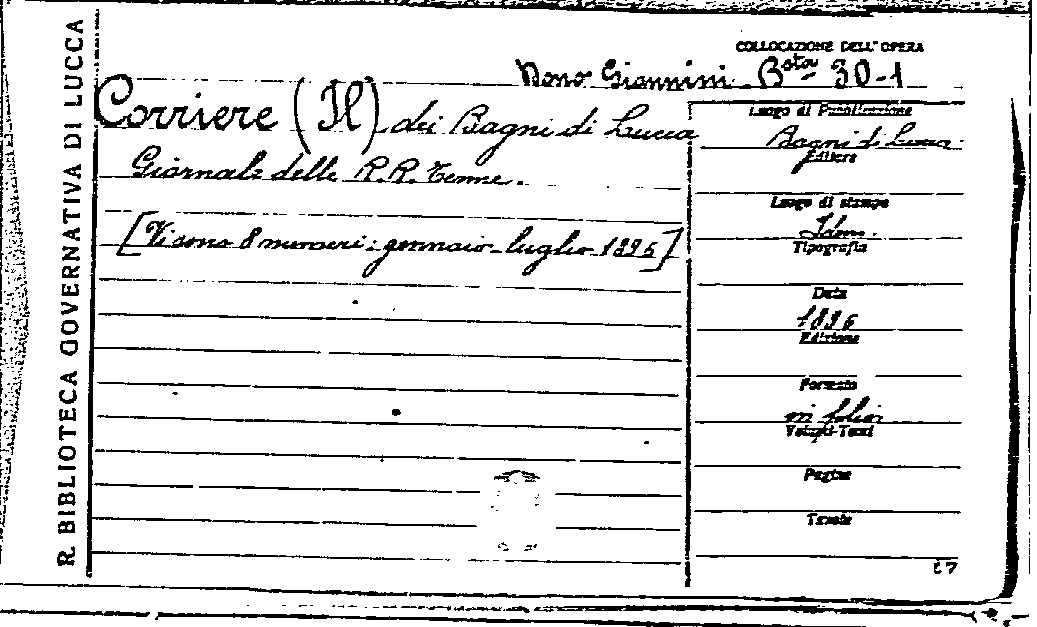 R. BIBLIOTECA GOVERNATIVA DI LUCCA
COLLOCAZIONE DELL'OPERA
Dono Giannini. Bsta 30-1
Corriere (Il) dei Bagni di Lucca
Giornale delle R.R. Terme.
[Vi sono 8 numeri: gennaio-luglio 1896]
Luogo di Pubblicazione
Bagni di Lucca.
Editore
Luogo di stampa
Idem.
Tipografia
Data
1896
Edizione
Formato
in folio
Volumi-Tomi
Pagine
Tavole